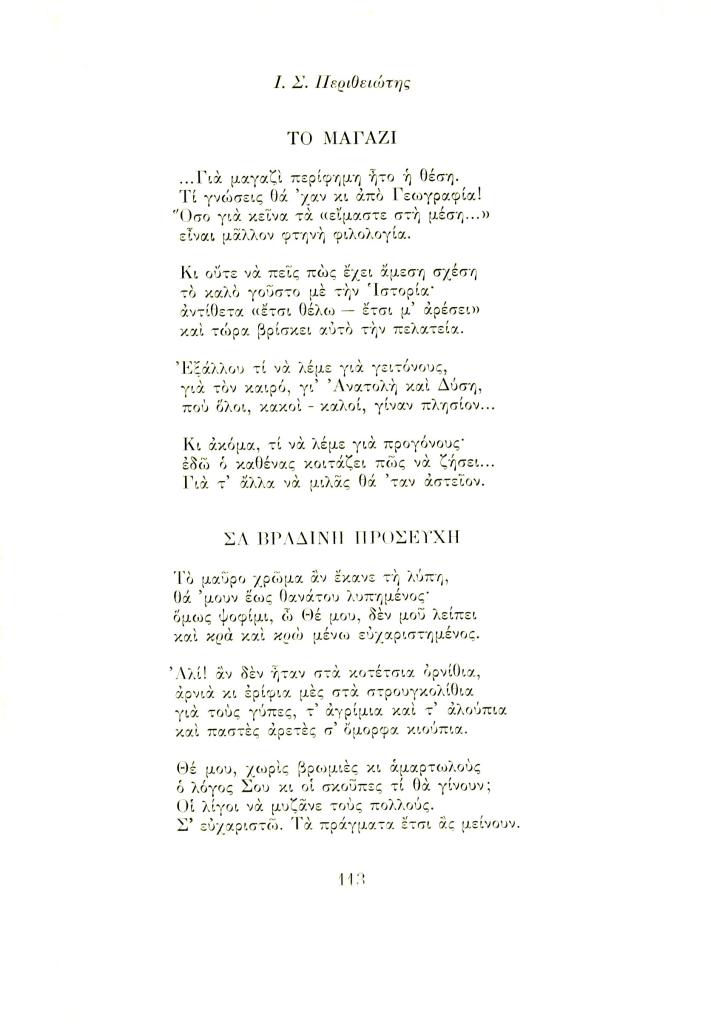 Ι. Σ. Περιθειώτης
ΤΟ ΜΑΓΑΖΙ
...Γιὰ μαγαζὶ περίφημη ἦτο ἡ θέση.
Τί γνώσεις θά ’χαν κι ἀπὸ Γεωγραφία!
Ὅσο γιὰ κεῖνα τὰ «εἴμαστε στὴ μέση...»
εἶναι μᾶλλον φτηνὴ φιλολογία.
Κι οὔτε νὰ πεῖς πὼς ἔχει ἄμεση σχέση
τὸ καλὸ γοῦστο μὲ τὴν Ἱστορία·
ἀντίθετα «ἔτσι θέλω — ἔτσι μ’ ἀρέσει»
καὶ τώρα βρίσκει αὐτὸ τὴν πελατεία.
Ἐξάλλου τί νὰ λέμε γιὰ γειτόνους,
γιὰ τὸν καιρό, γι’ Ἀνατολὴ καὶ Δύση,
ποὺ ὅλοι, κακοὶ - καλοί, γίναν πλησίον...
Κι ἀκόμα, τί νὰ λέμε γιὰ προγόνους·
ἐδῶ ὁ καθένας κοιτάζει πῶς νὰ ζήσει...
Γιὰ τ’ ἄλλα νὰ μιλᾶς θά ’ταν ἀστεῖον.
ΣΑ ΒΡΑΔΙΝΗ ΠΡΟΣΕΥΧΗ
Τὸ μαῦρο χρῶμα ἂν ἔκανε τὴ λύπη,
θά ’μουν ἕως θανάτου λυπημένος·
ὅμως ψοφίμι, ὦ Θέ μου, δὲν μοῦ λείπει
καὶ κρὰ καὶ κρὼ μένω εὐχαριστημένος.
Ἀλί! ἂν δὲν ἦταν στὰ κοτέτσια ὀρνίθια,
ἀρνιὰ κι ἐρίφια μὲς στὰ στρουγκολίθια
γιὰ τοὺς γύπες, τ’ ἀγρίμια καὶ τ’ ἀλούπια
καὶ παστὲς ἀρετὲς σ’ ὄμορφα κιούπια.
Θέ μου, χωρὶς βρωμιὲς κι ἁμαρτωλοὺς
ὁ λόγος Σου κι οἱ σκοῦπες τί θὰ γίνουν;
Οἱ λίγοι νὰ μυζᾶνε τοὺς πολλούς.
Σ’ εὐχαριστῶ. Τὰ πράγματα ἔτσι ἂς μείνουν.
113